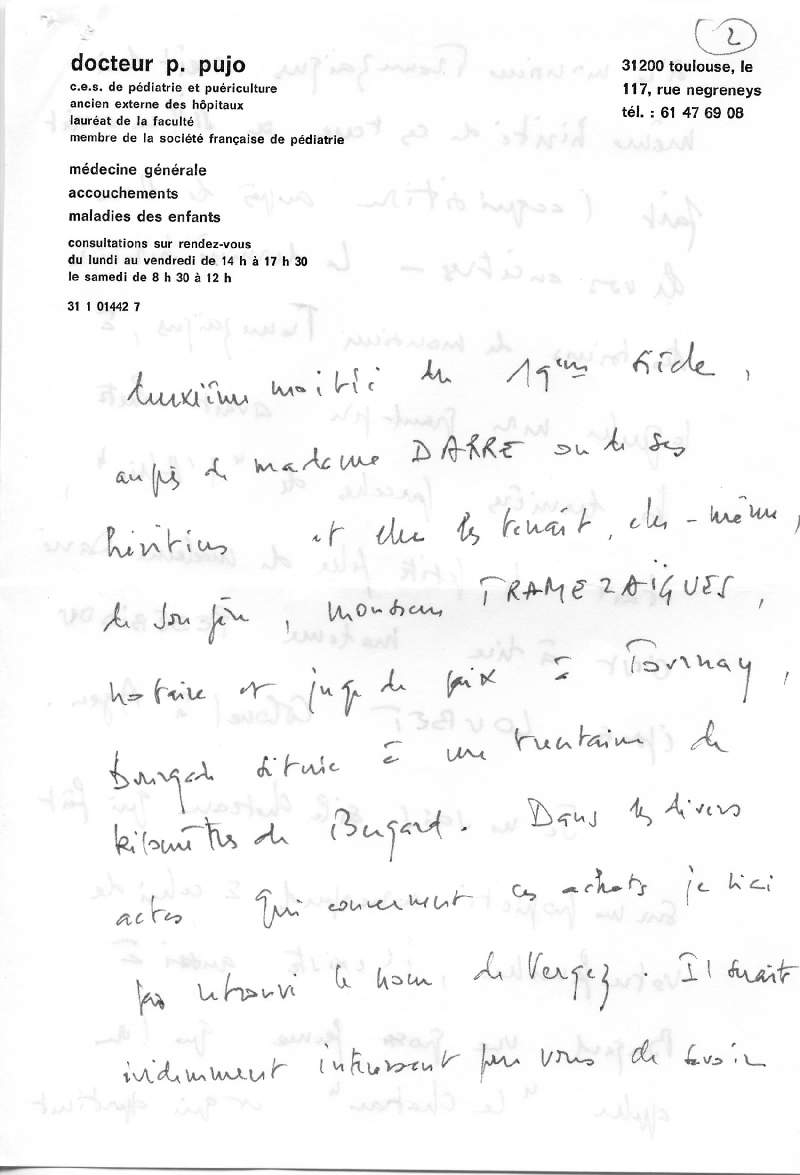 2
docteur p. pujo
c.e.s. de pédiatrie et puériculture
ancien externe des hôpitaux
lauréat de la faculté
membre de la société française de pédiatrie
médecine générale
accouchements
maladies des enfants
consultations sur rendez-vous
du lundi au vendredi de 14 h à 17 h 30
le samedi de 8 h 30 à 12 h
31 1 01442 7
31200 toulouse, le
117, rue negreneys
tél. : 61 47 69 08
deuxième moitié du 19ème siècle,
auprès de madame DARRE ou de ses
héritiers et elle les tenait, elle-même,
de son père, monsieur TRAMEZAÏGUES,
notaire et juge de paix à Tournay,
bourgade située à une trentaine de
kilomètres de Bugard. Dans les divers
actes qui concernent ces achats je n'ai
pas retrouvé le nom de Vergez. Il serait
évidemment intéressant pour vous de savoir